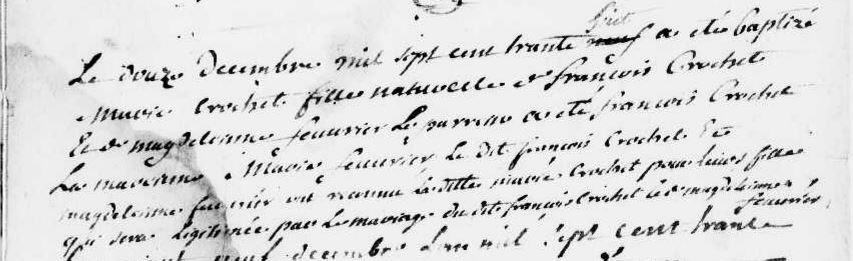 huit
Le douze decembre mil sept cent trante neuf a eté baptizé
Marie Crochet fille naturelle de françois Crochet
Et de magdelenne feuvrier Le parrein a eté françois Crochet
La maraine Marie feuvrier Le dit françois Crochet Et
magdelenne feuvrier ont reconnu la ditte marie Crochet pour leurs fille
qui sera Legitimée par Le mariage du dit françois Crochet et de magdelenne
feuvrier
neuf decembre Lan mil sept cent trante